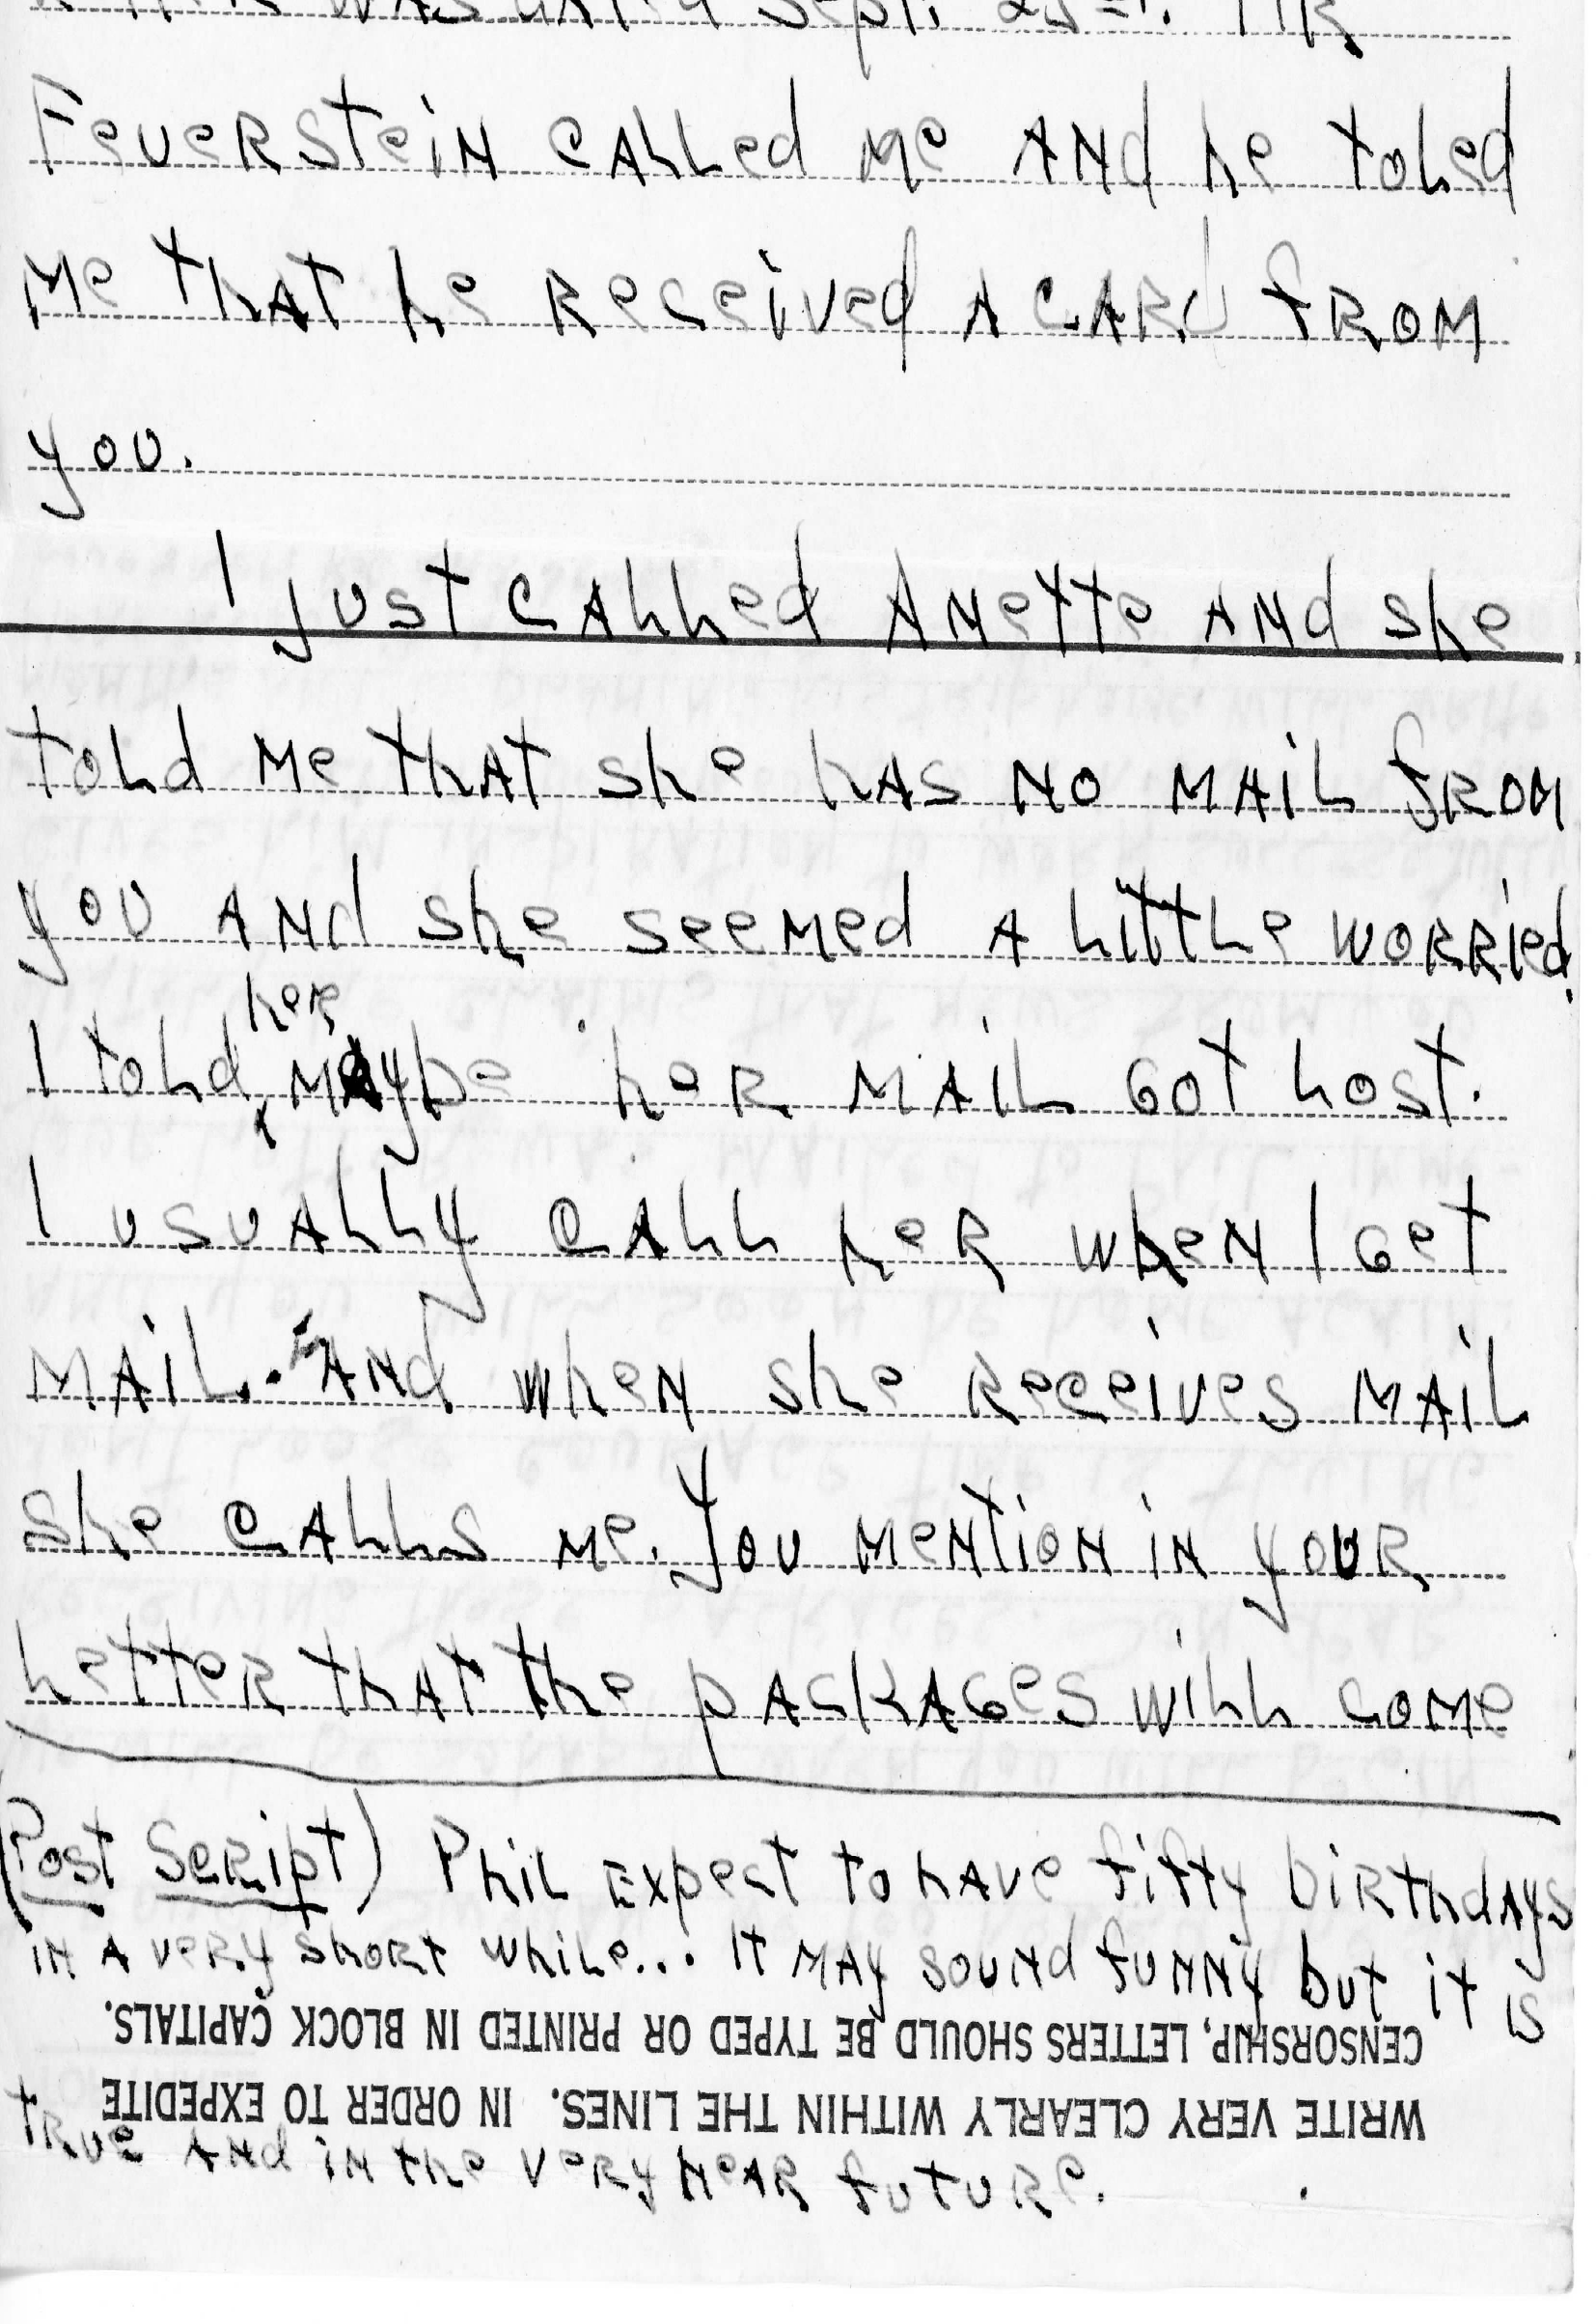 was dated Sept. 25th. Mr
Feuerstein called me and he toled
me that he received a card from
you.
I just called Anette and she
told me that she has no mail from
you and she seemed a little worried.
her
I told, maybe her mail got lost.
I usually call her when I get
mail. And when she receives mail
she calls me. You mention in your
letter that the packages will come
(Post Script) Phil Expect to have fifty birthdays
in a very short while... It may sound funny but it is
true and in the very near future.
WRITE VERY CLEARLY WITHIN THE LINES. IN ORDER TO EXPEDITE
CENSORSHIP, LETTERS SHOULD BE TYPED OR PRINTED IN BLOCK CAPITALS.